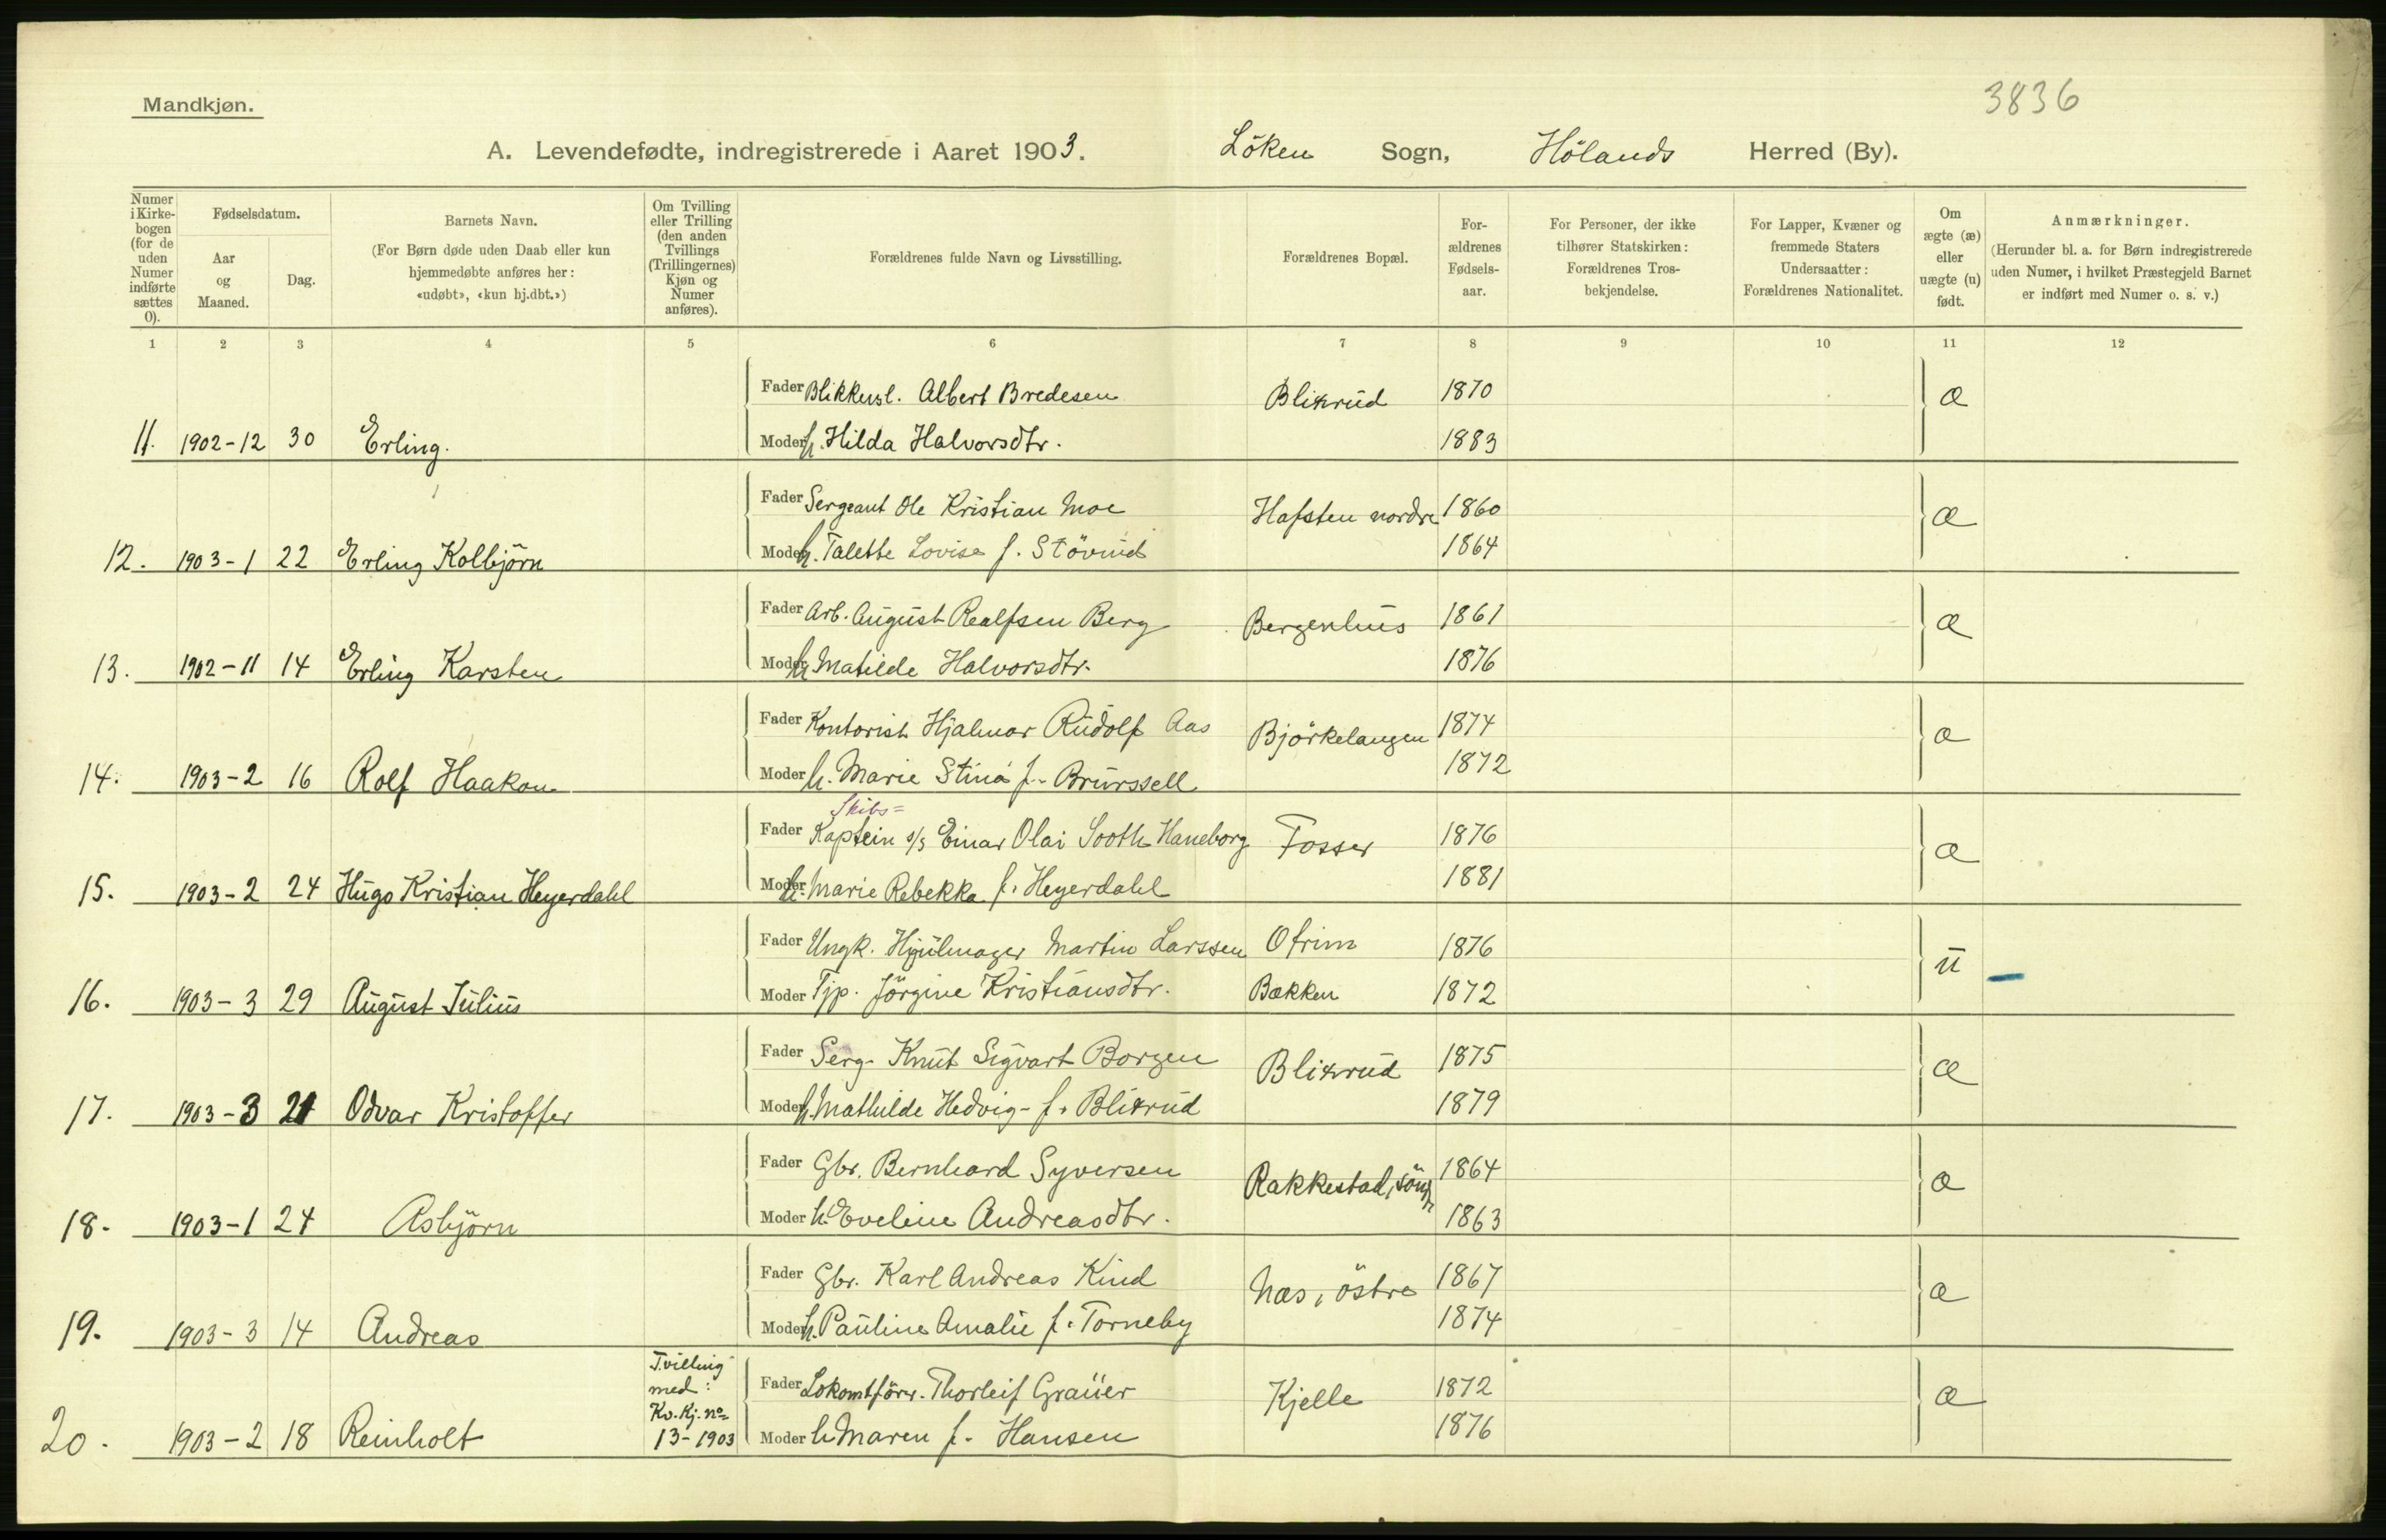 3836
Mandkjøn.
A. Levendefødte, indregistrerede i Aaret 1903. Löken Sogn, Hölands Herred (By).
Numer i Kirke-bogen (for de uden Numer indførte sættes 0).
Fødselsdatum.
Aar og Maaned.
Dag.
Barnets Navn.
(For Børn døde uden Daab eller kun hjemmedøbte anføres her: «udøbt», «kun hj.dbt.»)
Om Tvilling eller Trilling (den anden Tvillings (Trillingernes) Kjøn og Numer anføres).
Forældrenes fulde Navn og Livsstilling.
Forældrenes Bopæl.
For-ældrenes Fødsels-aar.
For Personer, der ikke tilhører Statskirken: Forældrenes Tros-bekjendelse.
For Lapper, Kvæner og fremmede Staters Undersaatter: Forældrenes Nationalitet.
Om ægte (æ) eller uægte (u) født.
Anmærkninger.
(Herunder bl. a. for Børn indregistrerede uden Numer, i hvilket Præstegjeld Barnet er indført med Numer o. s. v.)
1 2 3 4 5 6 7 8 9 10 11 12
Fader Blikkensl. Albert Bredesen Blixrud 1870 æ
11. 1902-12 30 Erling. Moder h. Hilda Halvorsdtr. 1883
Fader Sergeant Ole Kristian Moe Hafsten nordre 1860 æ
12. 1903-1 22 Erling Kolbjörn Moder h. Talette Lovise f. Stövind 1864
Fader Arb. August Realfsen Berg Bergenhus 1861 æ
13. 1902-11 14 Erling Karsten Moder h. Matilde Halvorsdtr. 1876
Fader Kontorist Hjalmar Rudolf Aas Björkelangen 1874 æ
14. 1903-2 16 Rolf Haakon Moder h. Marie Stina f. Brurssell 1872
Skibs=
Fader Kaptein s/s Einar Olai Sooth Haneborg Fosser 1876 æ
15. 1903-2 24 Hugo Kristian Heyerdahl Moder h. Marie Rebekka f. Heyerdahl 1881
Fader Ungk. Hjulmager Martin Larssen Ofrim 1876 u
16. 1903-3 29 August Julius Moder Tjp. Jörgine Kristiansdtr. Bakken 1872
Fader Serg. Knut Sigvart Borgen Blixrud 1875 æ
17. 1903-3 21 Odvar Kristoffer Moder h. Mathilde Hedvig f. Blixrud 1879
Fader Gbr. Bernhard Syversen Rakkestad, söndr 1864 æ
18. 1903-1 24 Asbjörn Moder h. Eveline Andreasdtr. 1863
Fader Gbr. Karl Andreas Kind Næs, östre 1867 æ
19. 1903-3 14 Andreas Moder h. Pauline Amalie f. Torneby 1874
Tvilling med: Kv. Kj. no 13-1903
Fader Lokomtförer. Thorleif Graüer Kjelle 1872 æ
20. 1903-2 18 Reinholt Moder h. Maren f. Hansen 1876